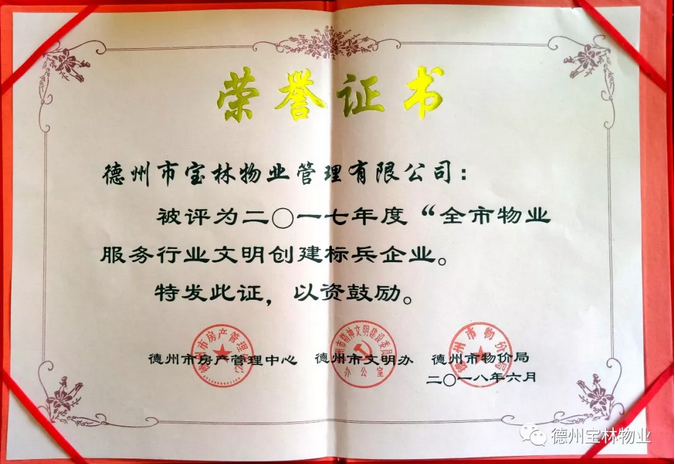 荣誉证书
德州市宝林物业管理有限公司：
被评为二〇一七年度“全市物业
服务行业文明创建标兵企业。
特发此证，以资鼓励。
德州市房产管理中心 德州市文明办 德州市物价局
二〇一八年六月
德州市房产管理中心
办公室
德州市物价局
德州宝林物业